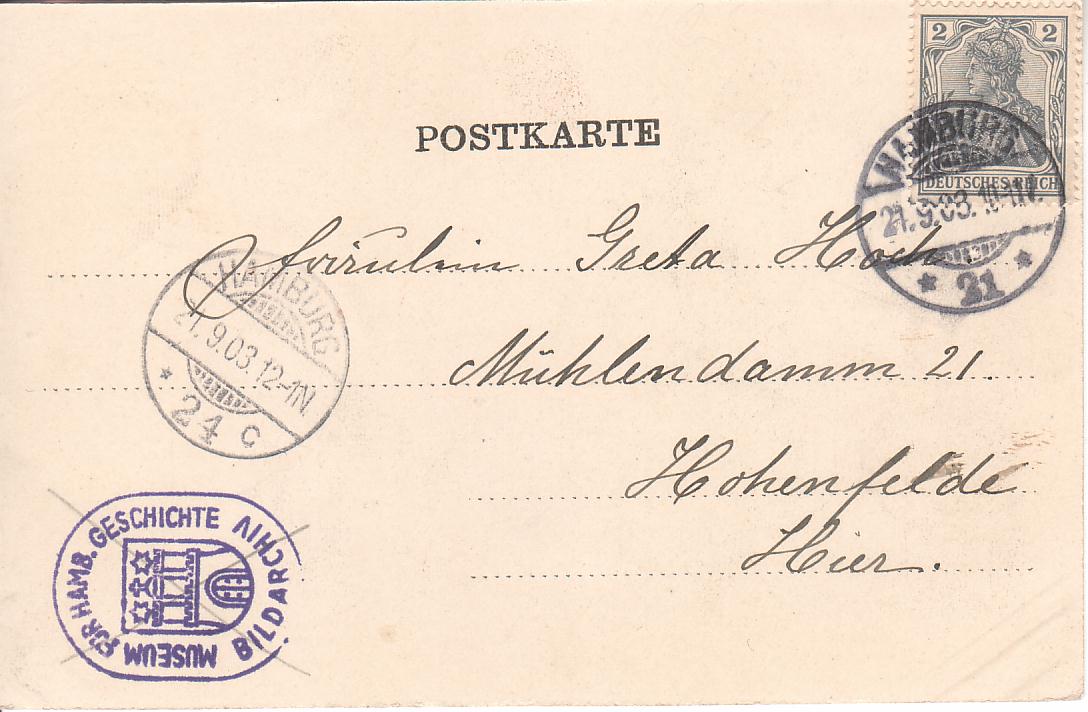 2 2
DEUTSCHES REICH
POSTKARTE
HAMBURG
21.9.03.
* 21 *
Fräulein Greta Hoch
HAMBURG
21.9.03.12-1N
* 24 c
Mühlendamm 21.
Hohenfelde
Hier.
MUSEUM FÜR HAMB. GESCHICHTE
BILDARCHIV